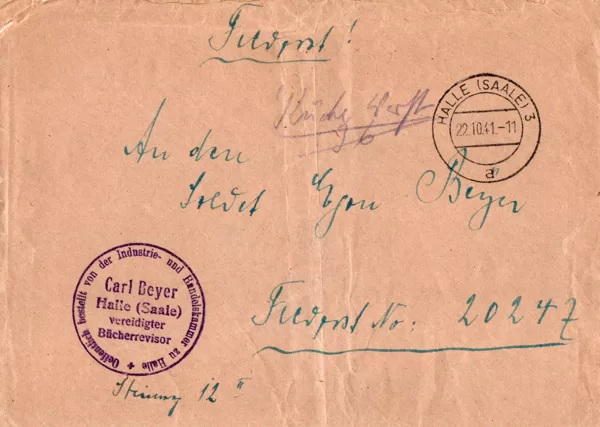 Feldpost!
HALLE (SAALE) 3
22.10.41.-11
a
An den
Soldat Egon Beyer
Oeffentlich bestellt von der Industrie- und Handelskammer zu Halle
Carl Beyer
Halle (Saale)
vereidigter
Bücherrevisor
Feldpost No: 20247
12 II